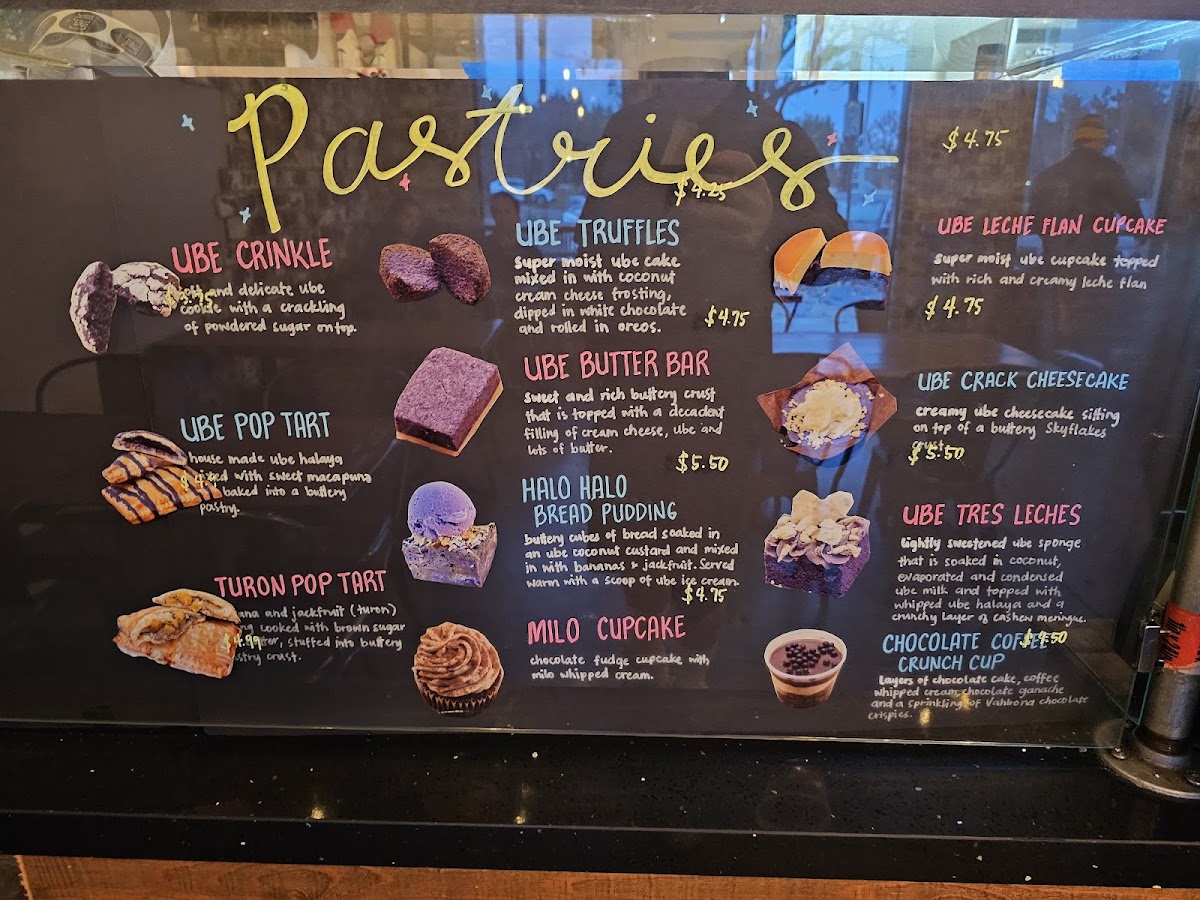 Pastries
UBE CRINKLE
and delicate ube
cookie with a crackling
of powdered sugar on top.
UBE POP TART
house made ube halaya
mixed with sweet macapuno
baked into a buttery
pastry.
TURON POP TART
and jackfruit (turon)
cooked with brown sugar
stuffed into buttery
crust.
$4.99
$4.25
UBE TRUFFLES
super moist ube cake
mixed in with coconut
cream cheese frosting,
dipped in white chocolate
and rolled in oreos.
$4.75
UBE BUTTER BAR
sweet and rich buttery crust
that is topped with a decadent
filling of cream cheese, ube and
lots of butter.
$5.50
HALO HALO
BREAD PUDDING
buttery cubes of bread soaked in
an ube coconut custard and mixed
in with bananas & jackfruit. Served
warm with a scoop of ube ice cream.
$4.75
MILO CUPCAKE
chocolate fudge cupcake with
milo whipped cream.
$4.75
UBE LECHE FLAN CUPCAKE
super moist ube cupcake topped
with rich and creamy leche flan
$4.75
UBE CRACK CHEESECAKE
creamy ube cheesecake sitting
on top of a buttery Skyflakes
$5.50
UBE TRES LECHES
lightly sweetened ube sponge
that is soaked in coconut,
evaporated and condensed
ube milk and topped with
whipped ube halaya and a
crunchy layer of cashew meringue.
CHOCOLATE COFFEE
CRUNCH CUP
Layers of chocolate cake, coffee
whipped cream, chocolate ganache
and a sprinkling of Valhrona chocolate
crispies.